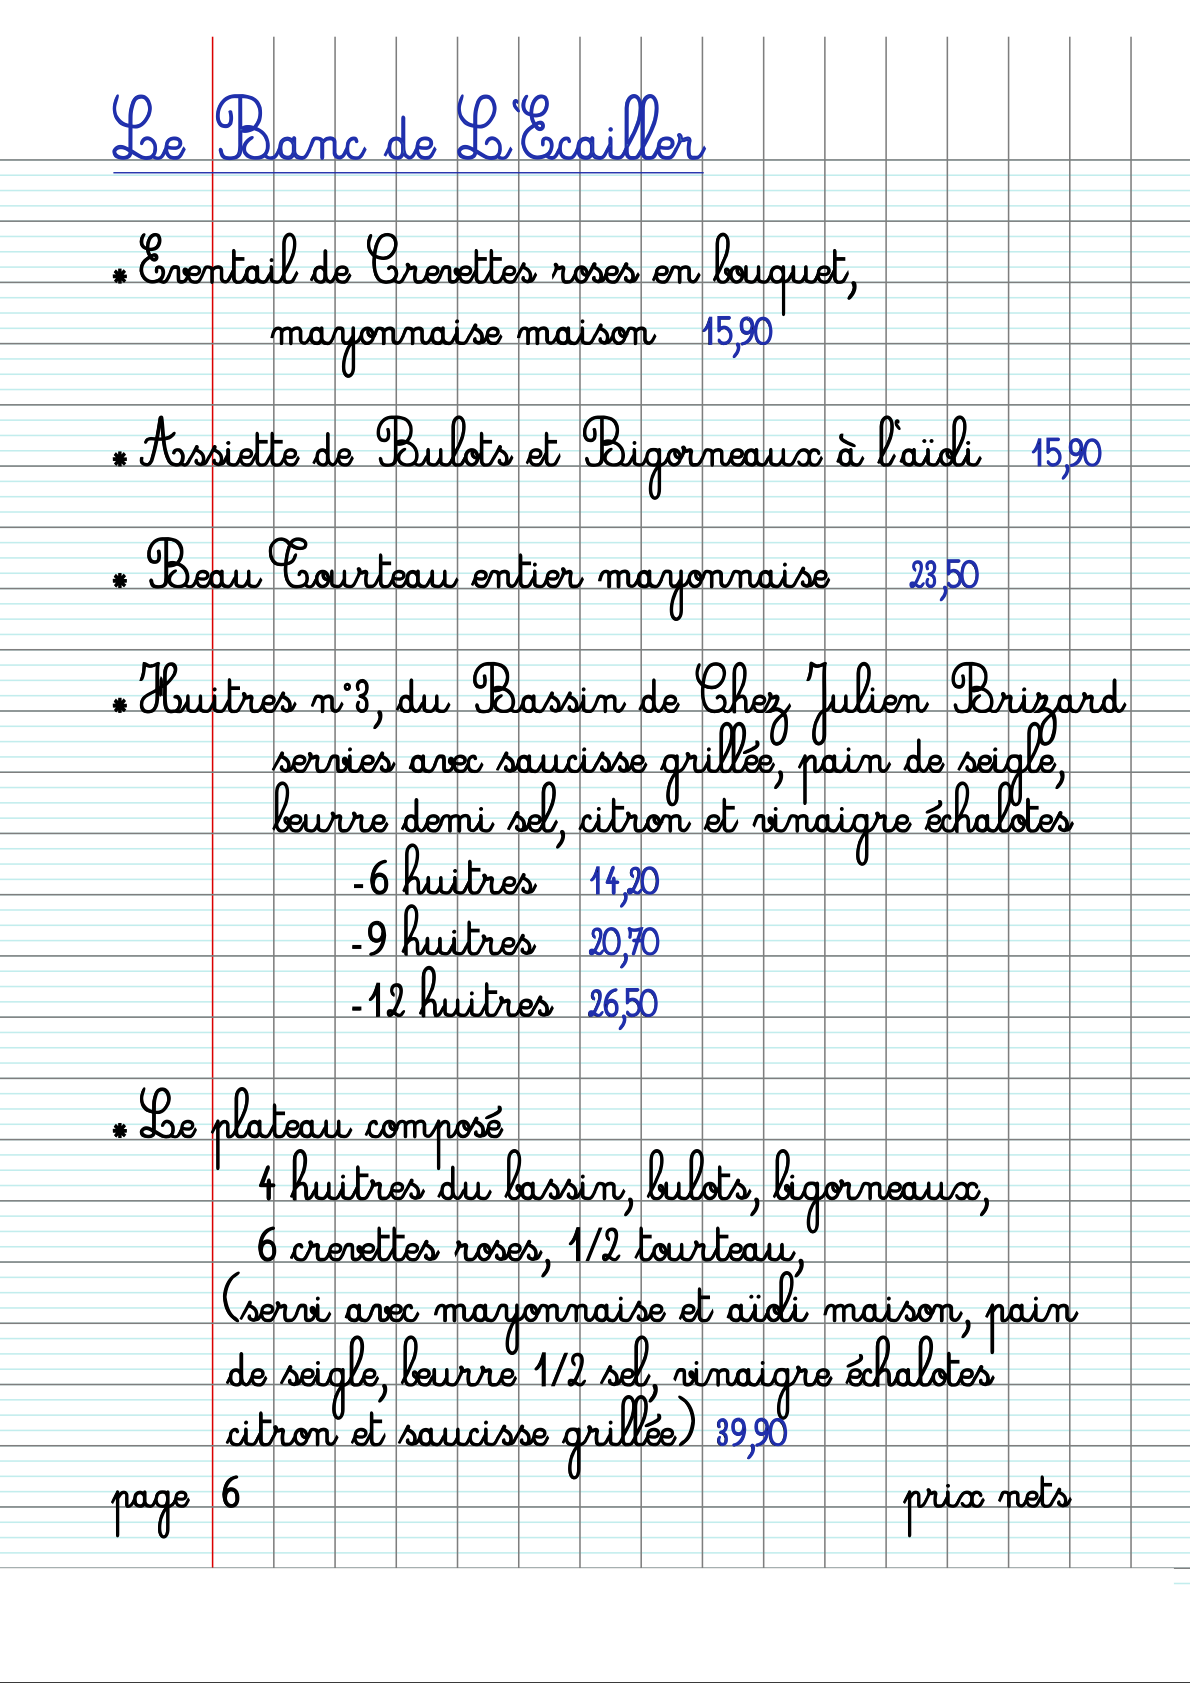 Le Banc de L'Ecailler
* Eventail de Crevettes roses en bouquet,
mayonnaise maison 15,90
* Assiette de Bulots et Bigorneaux à l'aïoli 15,90
* Beau Tourteau entier mayonnaise 23,50
* Huitres n°3, du Bassin de Chez Julien Brizard
servies avec saucisse grillée, pain de seigle,
beurre demi sel, citron et vinaigre échalotes
-6 huitres 14,20
-9 huitres 20,70
-12 huitres 26,50
* Le plateau composé
4 huitres du bassin, bulots, bigorneaux,
6 crevettes roses, 1/2 tourteau,
(servi avec mayonnaise et aïoli maison, pain
de seigle, beurre 1/2 sel, vinaigre échalotes
citron et saucisse grillée) 39,90
page 6 prix nets